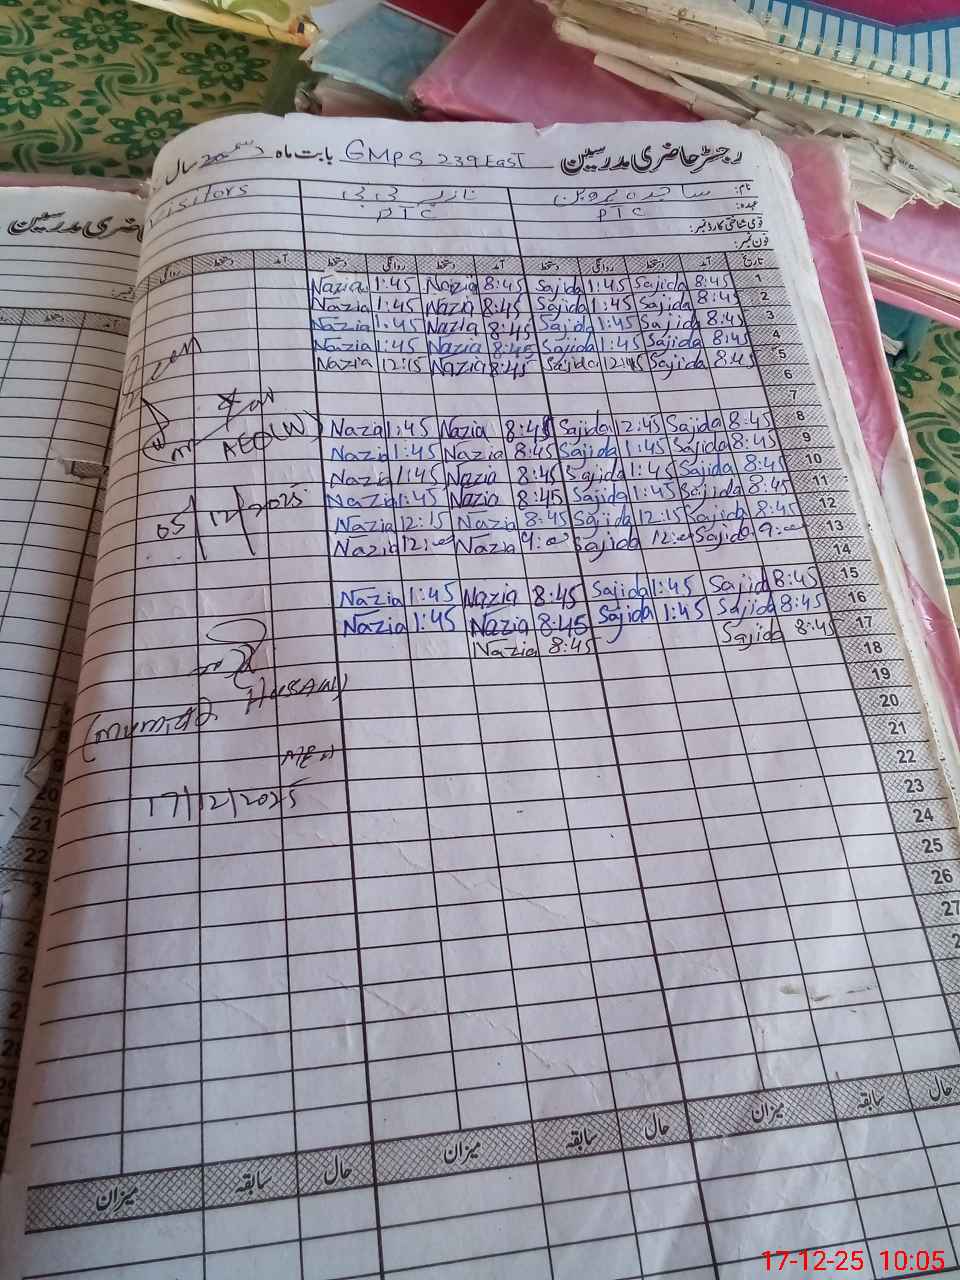 رجسٹر حاضری مدرسین GMPS 239 East بابت ماہ دسمبر سال
نام: ساجدہ پروین نازیہ بی بی Visitors
عہدہ: PTC PTC
قومی شناختی کارڈ نمبر:
فون نمبر:
تاریخ آمد دستخط روانگی دستخط آمد دستخط روانگی دستخط آمد دستخط روانگی
1 8:45 Sajida 1:45 Sajida 8:45 Nazia 1:45 Nazia
2 8:45 Sajida 1:45 Sajida 8:45 Nazia 1:45 Nazia
3 8:45 Sajida 1:45 Sajida 8:45 Nazia 1:45 Nazia
4 8:45 Sajida 1:45 Sajida 8:45 Nazia 1:45 Nazia
5 8:45 Sajida 12:15 Sajida 8:45 Nazia 12:15 Nazia
6
7
8 8:45 Sajida 2:45 Sajida 8:45 Nazia 1:45 Nazia
9 8:45 Sajida 1:45 Sajida 8:45 Nazia 1:45 Nazia
10 8:45 Sajida 1:45 Sajida 8:45 Nazia 1:45 Nazia
11 8:45 Sajida 1:45 Sajida 8:45 Nazia 1:45 Nazia
12 8:45 Sajida 12:15 Sajida 8:45 Nazia 12:15 Nazia
13 9:00 Sajida 12:00 Sajida 9:00 Nazia 12:00 Nazia
14
15 8:45 Sajida 1:45 Sajida 8:45 Nazia 1:45 Nazia
16 8:45 Sajida 1:45 Sajida 8:45 Nazia 1:45 Nazia
17 8:45 Sajida 8:45 Nazia
18
19
20
21
22
23
24
25
26
27
AEO(W)
05/12/2025
HUSAIN)
17/12/2025
حال سابقہ میزان حال سابقہ میزان حال سابقہ میزان
حاضری مدرسین
21
22
17-12-25 10:05